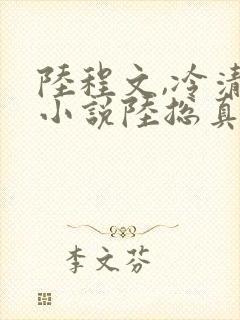 陸程文,冷清
小說陸總真
李文芬